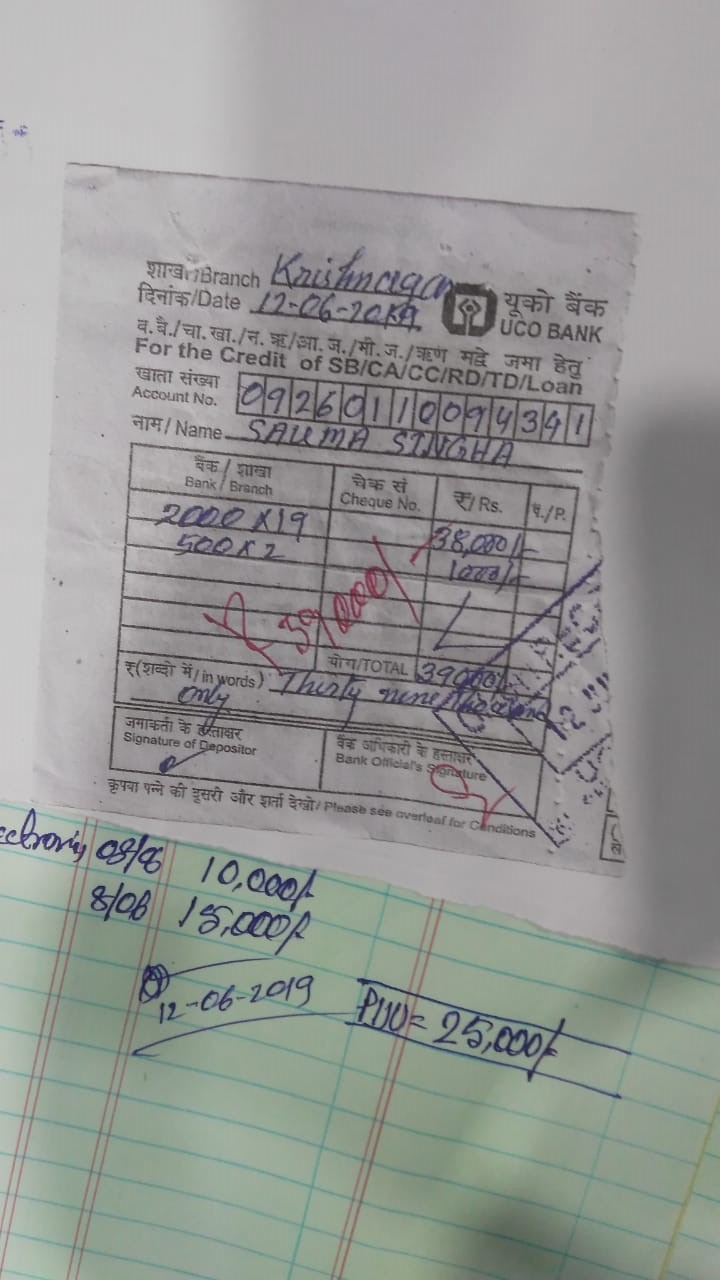 शाखा/Branch Krishnagar
दिनांक/Date 12-06-2019
यूको बैंक
UCO BANK
व.बै./चा.खा./न.ऋ/आ.ज./मी.ज./ऋण मद्दे जमा हेतु
For the Credit of SB/CA/CC/RD/TD/Loan
खाता संख्या
Account No. 09260110094341
नाम/Name SAUMA SINGHA
बैंक/शाखा चेक सं ₹/Rs. प./P.
Bank/Branch Cheque No.
2000 x 19 38,000/-
500 x 2 1000/-
39000/
योग/TOTAL 39000/-
₹(शब्दो में/in words) Thirty nine thousand
only
जमाकर्ता के हस्ताक्षर
Signature of Depositor
बैंक अधिकारी के हस्ताक्षर
Bank Official's Signature
कृपया पन्ने की दूसरी और शर्ता देखो/Please see overleaf for Conditions
08/06 10,000/-
8/06 15,000/-
12-06-2019
= 25,000/-